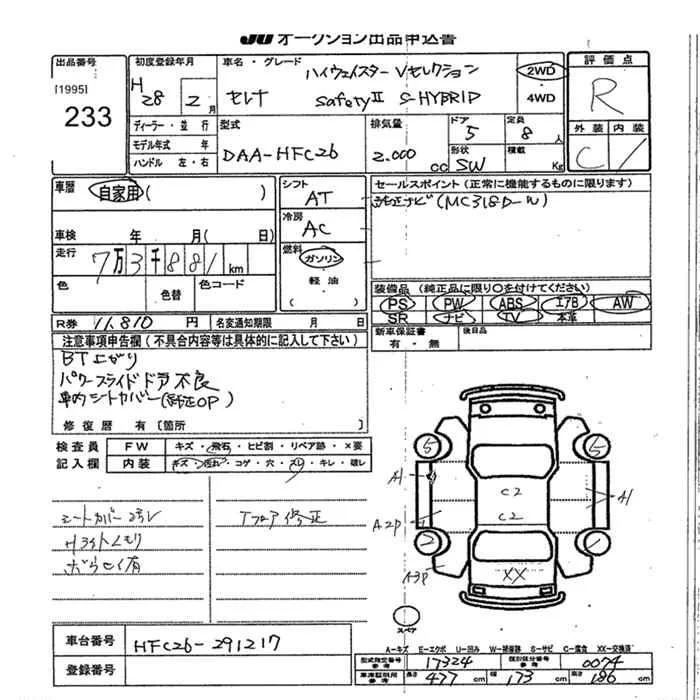 JU オークション出品申込書
出品番号
[1995]
233
初度登録年月
H 28 年 2 月
ディーラー・並行
モデル年式 年
ハンドル 左・右
車名・グレード
ハイウェイスター Vセレクション
セレナ safetyⅡ S-HYBRID
2WD
4WD
評価点
R
外装 内装
C /
型式
DAA-HFC26
排気量
2.000 cc
ドア
5
定員
8 人
形状
SW
積載
Kg
車歴
自家用 ( )
車検 年 月( 日)
走行
7万3千881km
色
色替
色コード
シフト
AT
冷房
AC
燃料
ガソリン
軽油
( )
セールスポイント (正常に機能するものに限ります)
純正ナビ(MC318D-W)
装備品 (純正品に限り○を付けてください)
PS PW ABS エアB AW
SR ナビ TV 本革
新車保証書
有・無
後日品
R券 11,810 円
名変通知期限 月 日
注意事項申告欄 (不具合内容等は具体的に記入して下さい)
BT上がり
パワースライドドア不良
車内シートカバー(純正OP)
修復歴 有 [箇所 ]
検査員
記入欄
FW キズ・飛石・ヒビ割・リペア跡・×要
内装 キズ・汚れ・コゲ・穴・スレ・キレ・破レ
シートカバー
Hライトくもり
Tフロア修正
5 5
A1
A1
C2
C2
A2P
A3P
XX
スペア
A-キズ E-エクボ U-凹み W-補修跡 S-サビ C-腐食 XX-交換済
車台番号 HFC26-291217
登録番号
型式指定番号 参考 17324
類別区分番号 参考 0074
車庫証明用 参考 長さ 477 cm 幅 173 cm 高さ 186 cm